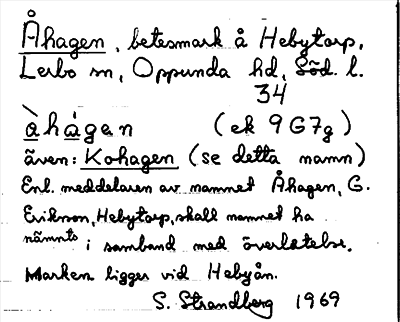 Åhagen, betesmark å Hebytorp,
Lerbo sn, Oppunda hd, Söd. l.
34
àhàgen (ek 9G7g)
även: Kohagen (se detta namn)
Enl. meddelaren av namnet Åhagen, G.
Erikson, Hebytorp, skall namnet ha
nämnts i samband med överlåtelse.
Marken ligger vid Hebyån.
S. Strandberg 1969